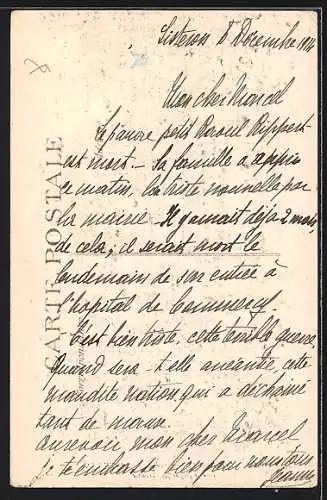 Sisteron 8 Decembre 1914
Mon cher Marcel
Le pauvre petit Raoul Rippert
est mort – Sa famille a appris
ce matin, la triste nouvelle par
la mairie. Il y aurait déjà 2 mois
de cela; il serait mort le
lendemain de son entrée à
l'hopital de Commercy.
C'est bien triste, cette terrible guerre.
Quand sera-t-elle anéantie, cette
maudite nation qui a déchainé
tant de maux.
au revoir mon cher Marcel
je t'embrasse bien pour nous tous
Jeanne
CARTE POSTALE